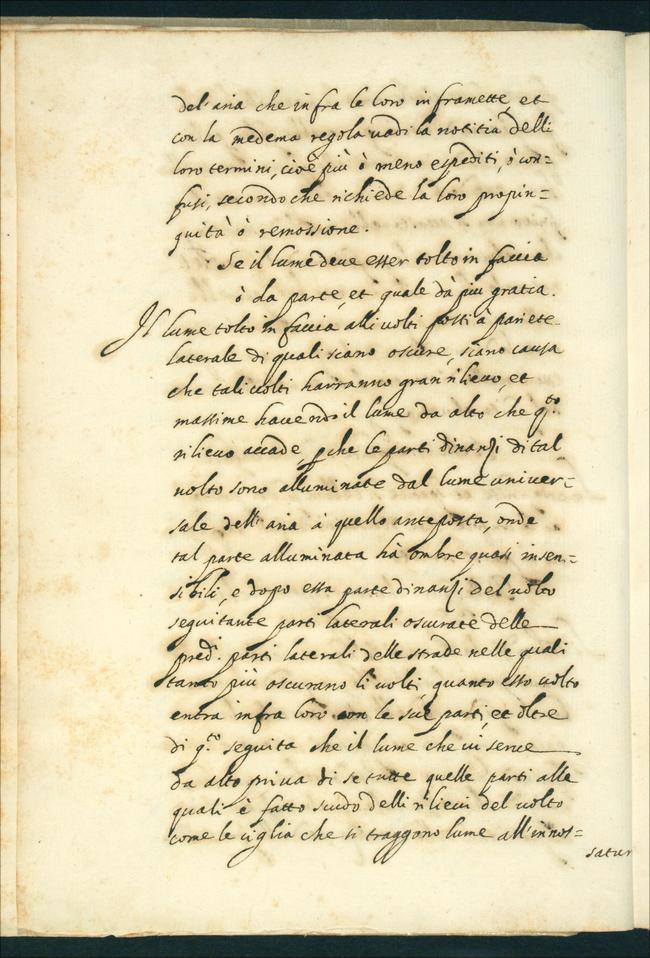 del'aria che infra le loro inframette, et
con la medema regola vadi la notitia delli
loro termini, cioè più ò meno espediti, ò con=
fusi, secondo che richiede la loro propin=
quità ò remossione.
Se il lume deve esser tolto in faccia
ò da parte, et quale dà più gratia.
Il lume tolto in faccia alli volti posti à pariete
laterale di quali siano oscure, siano causa
che tali volti harranno gran rilievo, et
massime havendo il lume da alto che q.to
rilievo accade, p che le parti dinanzi di tal
volto sono alluminate dal lume univer=
sale dell'aria à quello anteposta, onde
tal parte alluminata hà ombre quasi insen=
sibili, e dopo essa parte dinanzi del volto
seguitante parti laterali oscurate delle
pred. parti laterali delle strade nelle quali
tanto più oscurano li volti, quanto esso volto
entra infra loro con le sue parti, et oltre
di q.to seguita che il lume che vi serve
da alto priva di se tutte quelle parti alle
quali è fatto scudo delli rilievi del volto
come le ciglia che si traggono lume all'innos=
satur